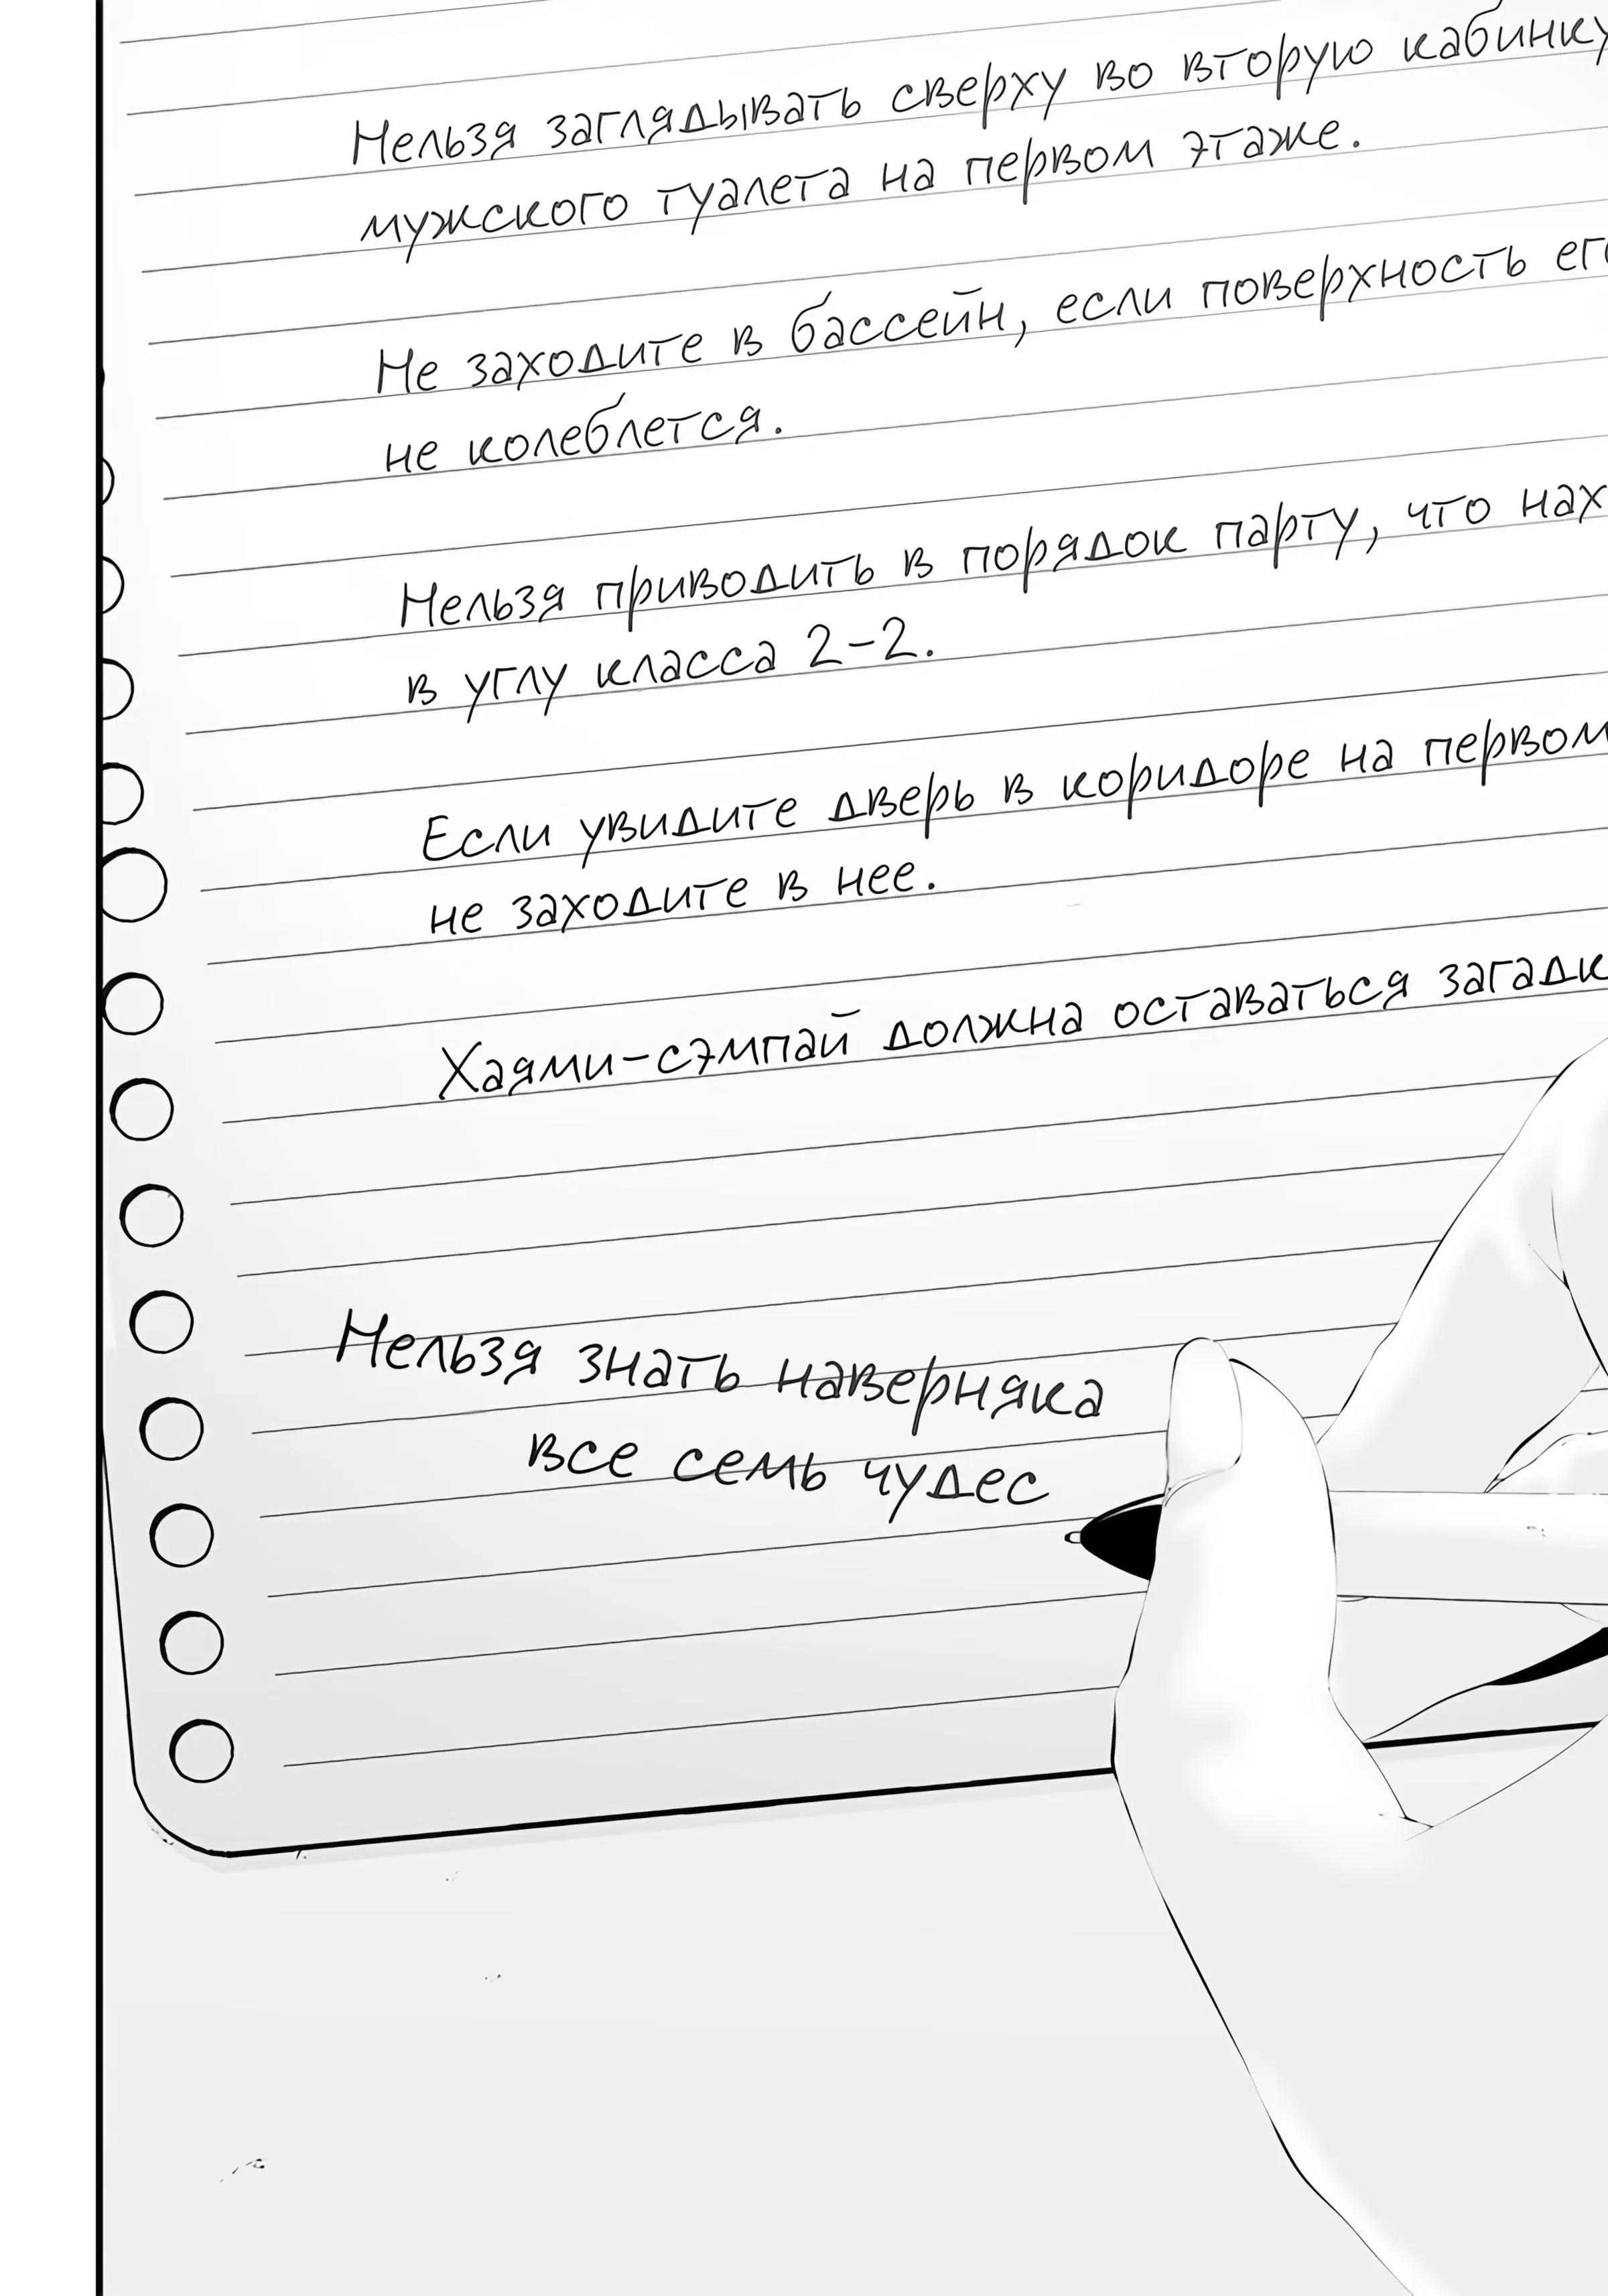 Нельзя заглядывать сверху во вторую кабинку
мужского туалета на первом этаже.
Не заходите в бассейн, если поверхность его
не колеблется.
Нельзя приводить в порядок парту, что нах
в углу класса 2-2.
Если увидите дверь в коридоре на первом
не заходите в нее.
Хаями-сэмпай должна оставаться загадк
Нельзя знать наверняка
все семь чудес